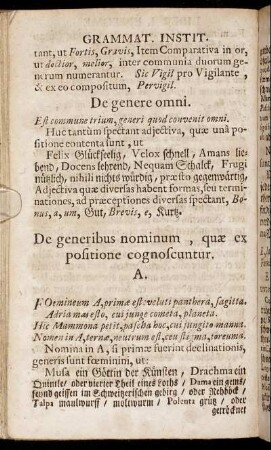 GRAMMAT. INSTIT.
tant, ut Fortis, Gravis, Item Comparativa in or,
ut doctior, melior, inter communia duorum ge-
nerum numerantur. Sic Vigil pro Vigilante,
& ex eo compositum, Pervigil.
De genere omni.
Est commune trium, generi quod convenit omni.
Huc tantùm spectant adjectiva, quæ unâ po-
sitione contenta sunt, ut
Felix Glückselig, Velox schnell, Amans lie-
bend, Docens lehrend, Nequam Schalck, Frugi
nützlich, nihili nichts würdig, præsto gegenwärtig,
Adjectiva quæ diversas habent formas, seu termi-
nationes, ad præceptiones diversas spectant, Bo-
nus, a, um, Gut, Brevis, e, Kurtz.
De generibus nominum, quæ ex
positione cognoscuntur.
A.
FOemineum A, primæ est: veluti panthera, sagitta.
Adria mas esto, cui junge cometa, planeta.
Hic Mammona petit, pascha hoc, cui jungito manna.
Nomen in A, ternæ, neutrum est, ceu stigma, toreuma.
Nomina in A, si primæ fuerint declinationis,
generis sunt fœminini, ut:
Musa ein Göttin der Künsten, Drachma ein
Quintle/ oder vierter Theil eines Loths/ Dama ein gems/
seynd geissen im Schweitzerischen gebirg/ oder Rehböck/
Talpa maulwurff/ moltwurm/ Polenta grütz/ oder
getröcknet